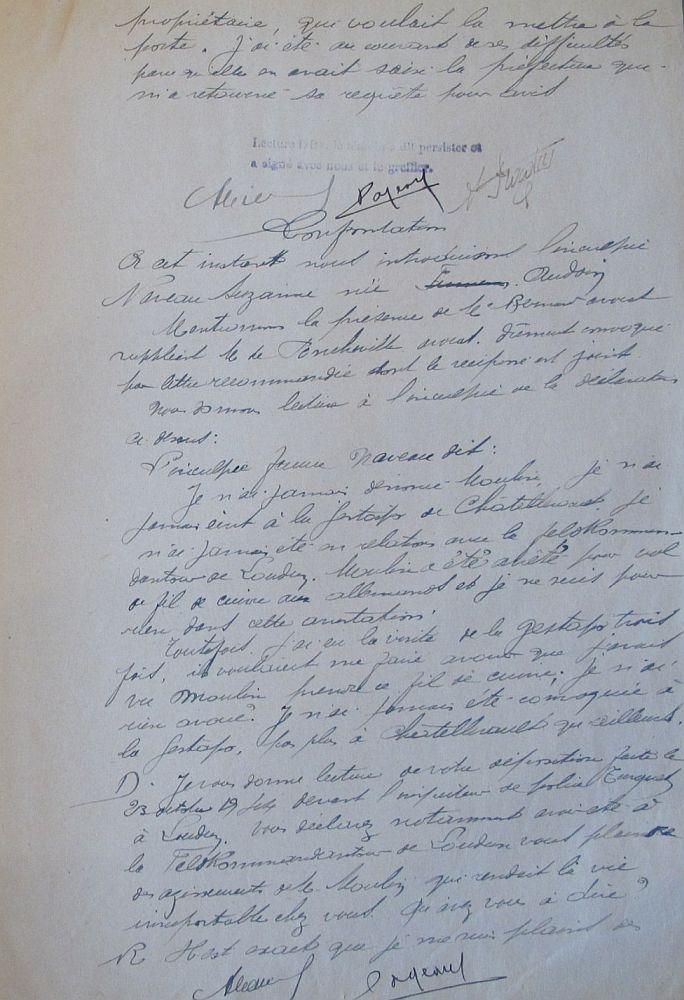 propriétaire, qui voulait la mettre à la
porte. J'ai été au courant de ses difficultés
parce qu'elle en avait saisi la préfecture qui
m'a retourné sa requête pour avis
Lecture faite, le témoin a dit persister et
a signé avec nous et le greffier.
Confrontation
A cet instant nous introduisons l'inculpée
Naveau Suzanne née Audoin
Mentionnons la présence de Me Bernard avocat
suppléant Me de avocat. dûment convoqué
par lettre recommandée dont le récipissé est joint
Nous donnons lecture à l'inculpée de la déclaration
ci dessus:
L'inculpée femme Naveau dit:
Je n'ai jamais dénoncé Moulin, je n'ai
jamais écrit à la Gestapo de Châtellerault, je
n'ai jamais été en relations avec la Feldkomman-
dantour de Loudun. Moulin a été arrêté pour vol
de fil de cuivre aux allemands et je ne suis pour
rien dans cette arrestation.
Toutefois j'ai eu la visite de la gestapo trois
fois, ils voulaient me faire avouer que j'avais
vu Moulin prendre ce fil de cuivre; je n'ai
rien avoué. Je n'ai jamais été convoquée à
la gestapo, pas plus à Châtellerault qu'ailleurs.
D. Je vous donne lecture de votre déposition faite le
23 octobre devant l'inspecteur de police
à Loudun. Vous déclarez notamment avoir été à
la Feldkommandantour de Loudun vous plaindre
des agissements de M. Moulin qui rendait la vie
insupportable chez vous. Qu'avez vous à dire?
R Il est exact que je me suis plaint des